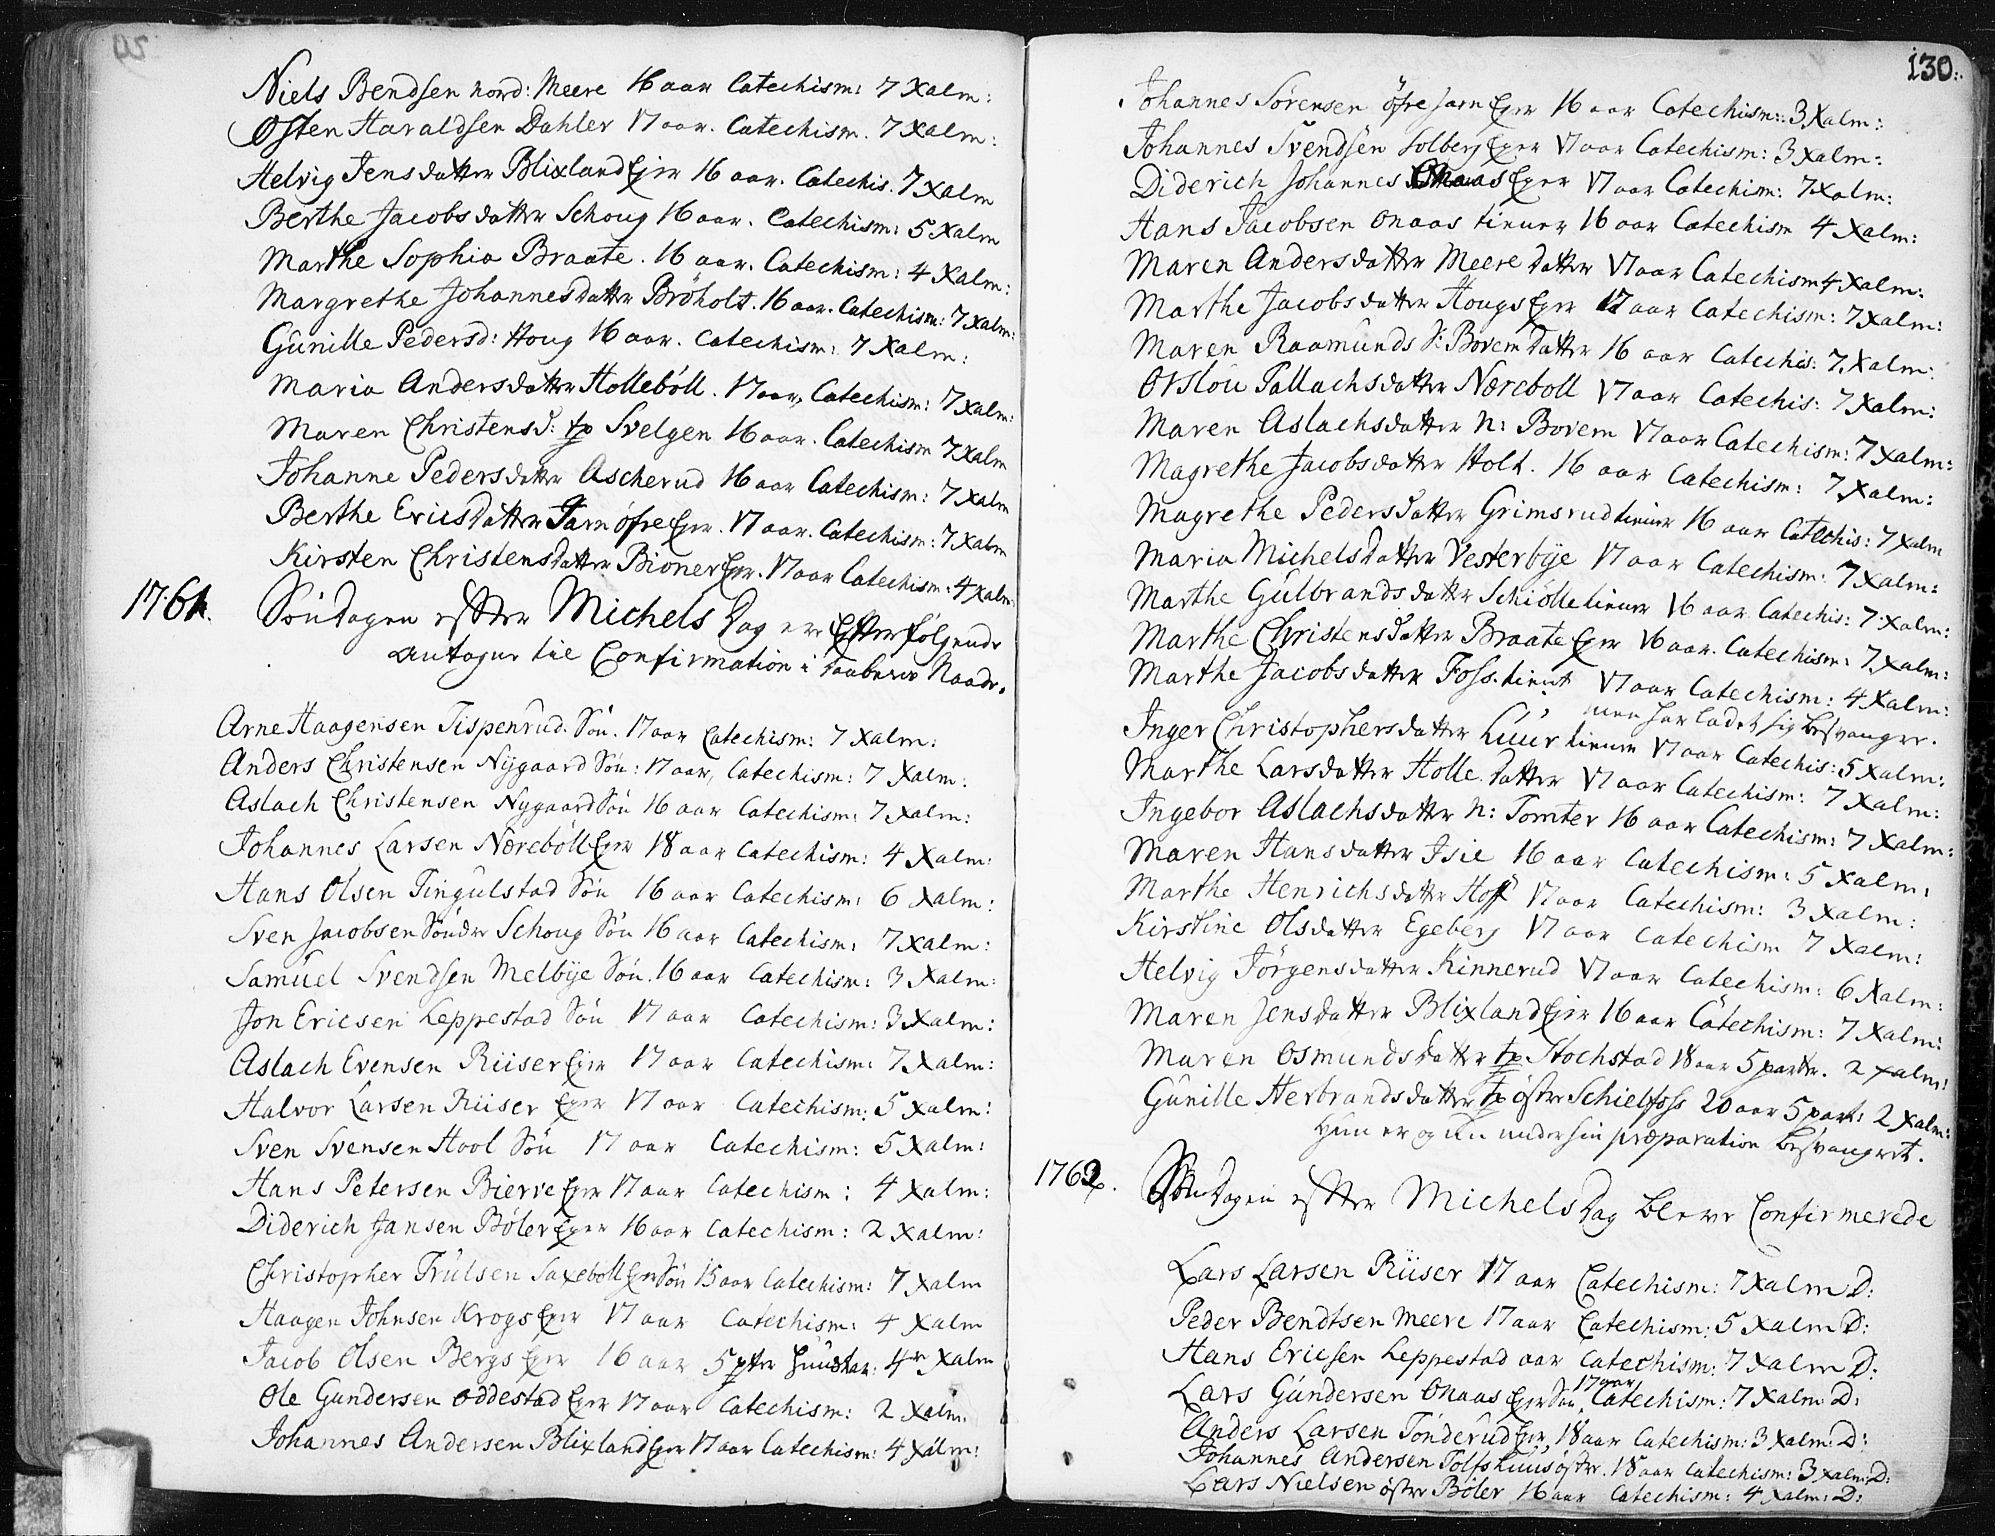 Niels Bendsen nord: Meere 16 aar Catechism: 7 Xalm:
Østen Haraldsen Dahler 17 aar. Catechism. 7 Xalm:
Helvig Jensdatter Blixland Ejer 16 aar. Catechis. 7 Xalm
Berthe Jacobsdatter Schoug 16 aar. Catechism: 5 Xalm
Marthe Sophia Braate. 16 aar. Catechism: 4 Xalm:
Margrethe Johannesdatter Brøholt. 16 aar. Catechism: 7 Xalm:
Gunille Pedersd: Houg 16 aar. Catechism: 7 Xalm:
Maria Andersdatter Hollebøll. 17 aar, Catechism: 7 Xalm:
Maren Christensd: Svelgen 16 aar. Catechism 7 Xalm
Johanne Pedersdatter Ascherud 16 aar Catechism: 7 Xalm
Berthe Ericsdatter Jarn øfre Ejer. 17 aar. Catechism: 7 Xalm
Kirsten Christensdatter Bioner Ejer. 17 aar Catechism: 4 Xalm
1761. Søndagen efter Michels Dag ere Efterfølgende
antagne til Confirmation i Daabens Naade.
Arne Haagensen Tispenrud. Søn. 17 aar Catechism: 7 Xalm:
Anders Christensen Nygaard Søn: 17 aar, Catechism: 7 Xalm:
Aslach Christensen Nygaard Søn 16 aar Catechism: 7 Xalm:
Johannes Larsen Nærebøll Ejer 18 aar Catechism: 4 Xalm:
Hans Olsen Tingulstad Søn 16 aar Catechism: 6 Xalm:
Sven Jacobsen Søndre Schoug Søn 16 aar Catechism: 7 Xalm:
Samuel Svendsen Melbye Søn. 16 aar Catechism: 3 Xalm:
Jon Ericsen Leppestad Søn 17 aar Catechism: 3 Xalm:
Aslach Evensen Riiser Ejer 17 aar Catechism: 7 Xalm:
Halvor Larsen Riiser Ejer 17 aar Catechism: 5 Xalm:
Sven Svensen Hool Søn 17 aar Catechism: 5 Xalm:
Hans Petersen Bierve Ejer 17 aar Catechism: 4 Xalm:
Diderich Jansen Bøler Ejer 16 aar Catechism: 2 Xalm:
Christopher Trulsen Saxeboll Ejer Søn 15 aar Catechism: 7 Xalm
Haagen Johnsen Krogs Ejer 17 aar Catechism: 4 Xalm
Jacob Olsen Bergs Ejer 16 aar 5 pter Huustar: 4re Xalm
Ole Gundersen Oddestad Ejer 17 aar Catechism: 2 Xalm:
Johannes Andersen Blixland Ejer 17 aar Catechism: 4 Xalm:
130.
Johannes Sørensen øfre Jarn Ejer 16 aar Catechism: 3 Xalm:
Johannes Svendsen Solberg Ejer 17 aar Catechism: 3 Xalm:
Diderich Johannes Onaas Ejer 17 aar Catechism: 7 Xalm:
Hans Jacobsen Onaas tiener 16 aar Catechism 4 Xalm:
Maren Andersdatter Meere datter 17 aar Catechism 4 Xalm:
Marthe Jacobsdatter Hougs Ejer 17 aar Catechism: 7 Xalm:
Maren Raamunds S: Borem datter 16 aar Catechis: 7 Xalm:
Orslou Tallachsdatter Næreboll 17 aar Catechis: 7 Xalm:
Maren Aslachsdatter N: Borem 17 aar Catechism: 7 Xalm:
Magrethe Jacobsdatter Holt. 16 aar Catechism: 7 Xalm:
Magrethe Pedersdatter Grimsrud tiener 16 aar Catechis: 7 Xalm
Maria Michelsdatter Vesterbye 17 aar Catechism: 7 Xalm:
Marthe Gulbrandsdatter Schiølle tiener 16 aar Catechis: 7 Xalm:
Marthe Christensdatter Braate Ejer 16 aar. Catechism: 7 Xalm:
Marthe Jacobsdatter Foss. tient 17 aar Catechism: 4 Xalm:
men har ladet sig besvangre.
Inger Christophersdatter Huur tiener 17 aar Catechis: 5 Xalm:
Marthe Larsdatter Holle datter 17 aar Catechism: 7 Xalm:
Ingebor Aslachsdatter N: Tomter 16 aar Catechism: 7 Xalm:
Maren Hansdatter Isie 16 aar Catechism: 5 Xalm:
Marthe Henrichsdatter Hoff 17 aar Catechism: 3 Xalm:
Kirstine Olsdatter Egeberg 17 aar Catechism 7 Xalm:
Helvig Jörgensdatter Kinnerud 17 aar Catechism: 6 Xalm:
Maren Jensdatter Blixland Ejer 16 aar Catechism: 7 Xalm:
Maren Osmundsdatter Stochstad 18 aar 5 parter. 2 Xalm:
Gunille Herbrandsdatter østre Schielfoss 20 aar 5 part: 2 Xalm:
Hun er og under sin præparation besvangret.
1762. Søndagen efter Michels Dag bleve Confirmerede
Lars Larsen Riiser 17 aar Catechism: 7 Xalm D:
Peder Bendtsen Meere 17 aar Catechism: 5 Xalm D:
Hans Ericsen Leppestad aar Catechism: 7 Xalm D:
Lars Gundersen Onaas Ejer Søn 17 aar Catechism: 7 Xalm D:
Anders Larsen Tønderud Ejer 18 aar Catechism: 3 Xalm: D:
Johannes Andersen Tolfshuus østre. 18 aar Catechism: 3 Xalm: D:
Lars Nielsen østre Bøler 16 aar Catechism: 4 Xalm: D: